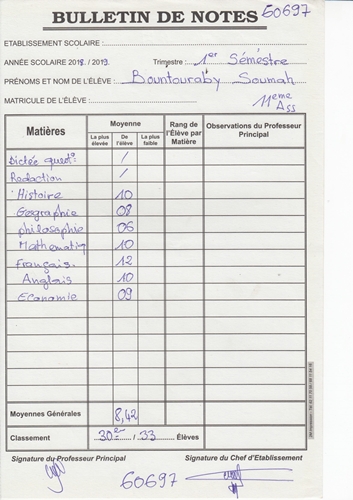 BULLETIN DE NOTES 60697
ETABLISSEMENT SCOLAIRE :
ANNÉE SCOLAIRE 2018 / 2019 Trimestre : 1er Sémèstre
PRÉNOMS ET NOM DE L'ÉLÈVE : Bountouraby Soumah
MATRICULE DE L'ÉLÈVE : 11eme
Ass
Matières Moyenne Rang de l'Élève par Matière Observations du Professeur Principal
La plus élevée De l'élève La plus faible
Dictée quest° /
Redaction /
Histoire 10
Geographie 08
philosophie 06
Mathematiq 10
Français 12
Anglais 10
Economie 09
Moyennes Générales 8,42
Classement 30e / 33 Élèves
Signature du Professeur Principal Signature du Chef d'Etablissement
60697